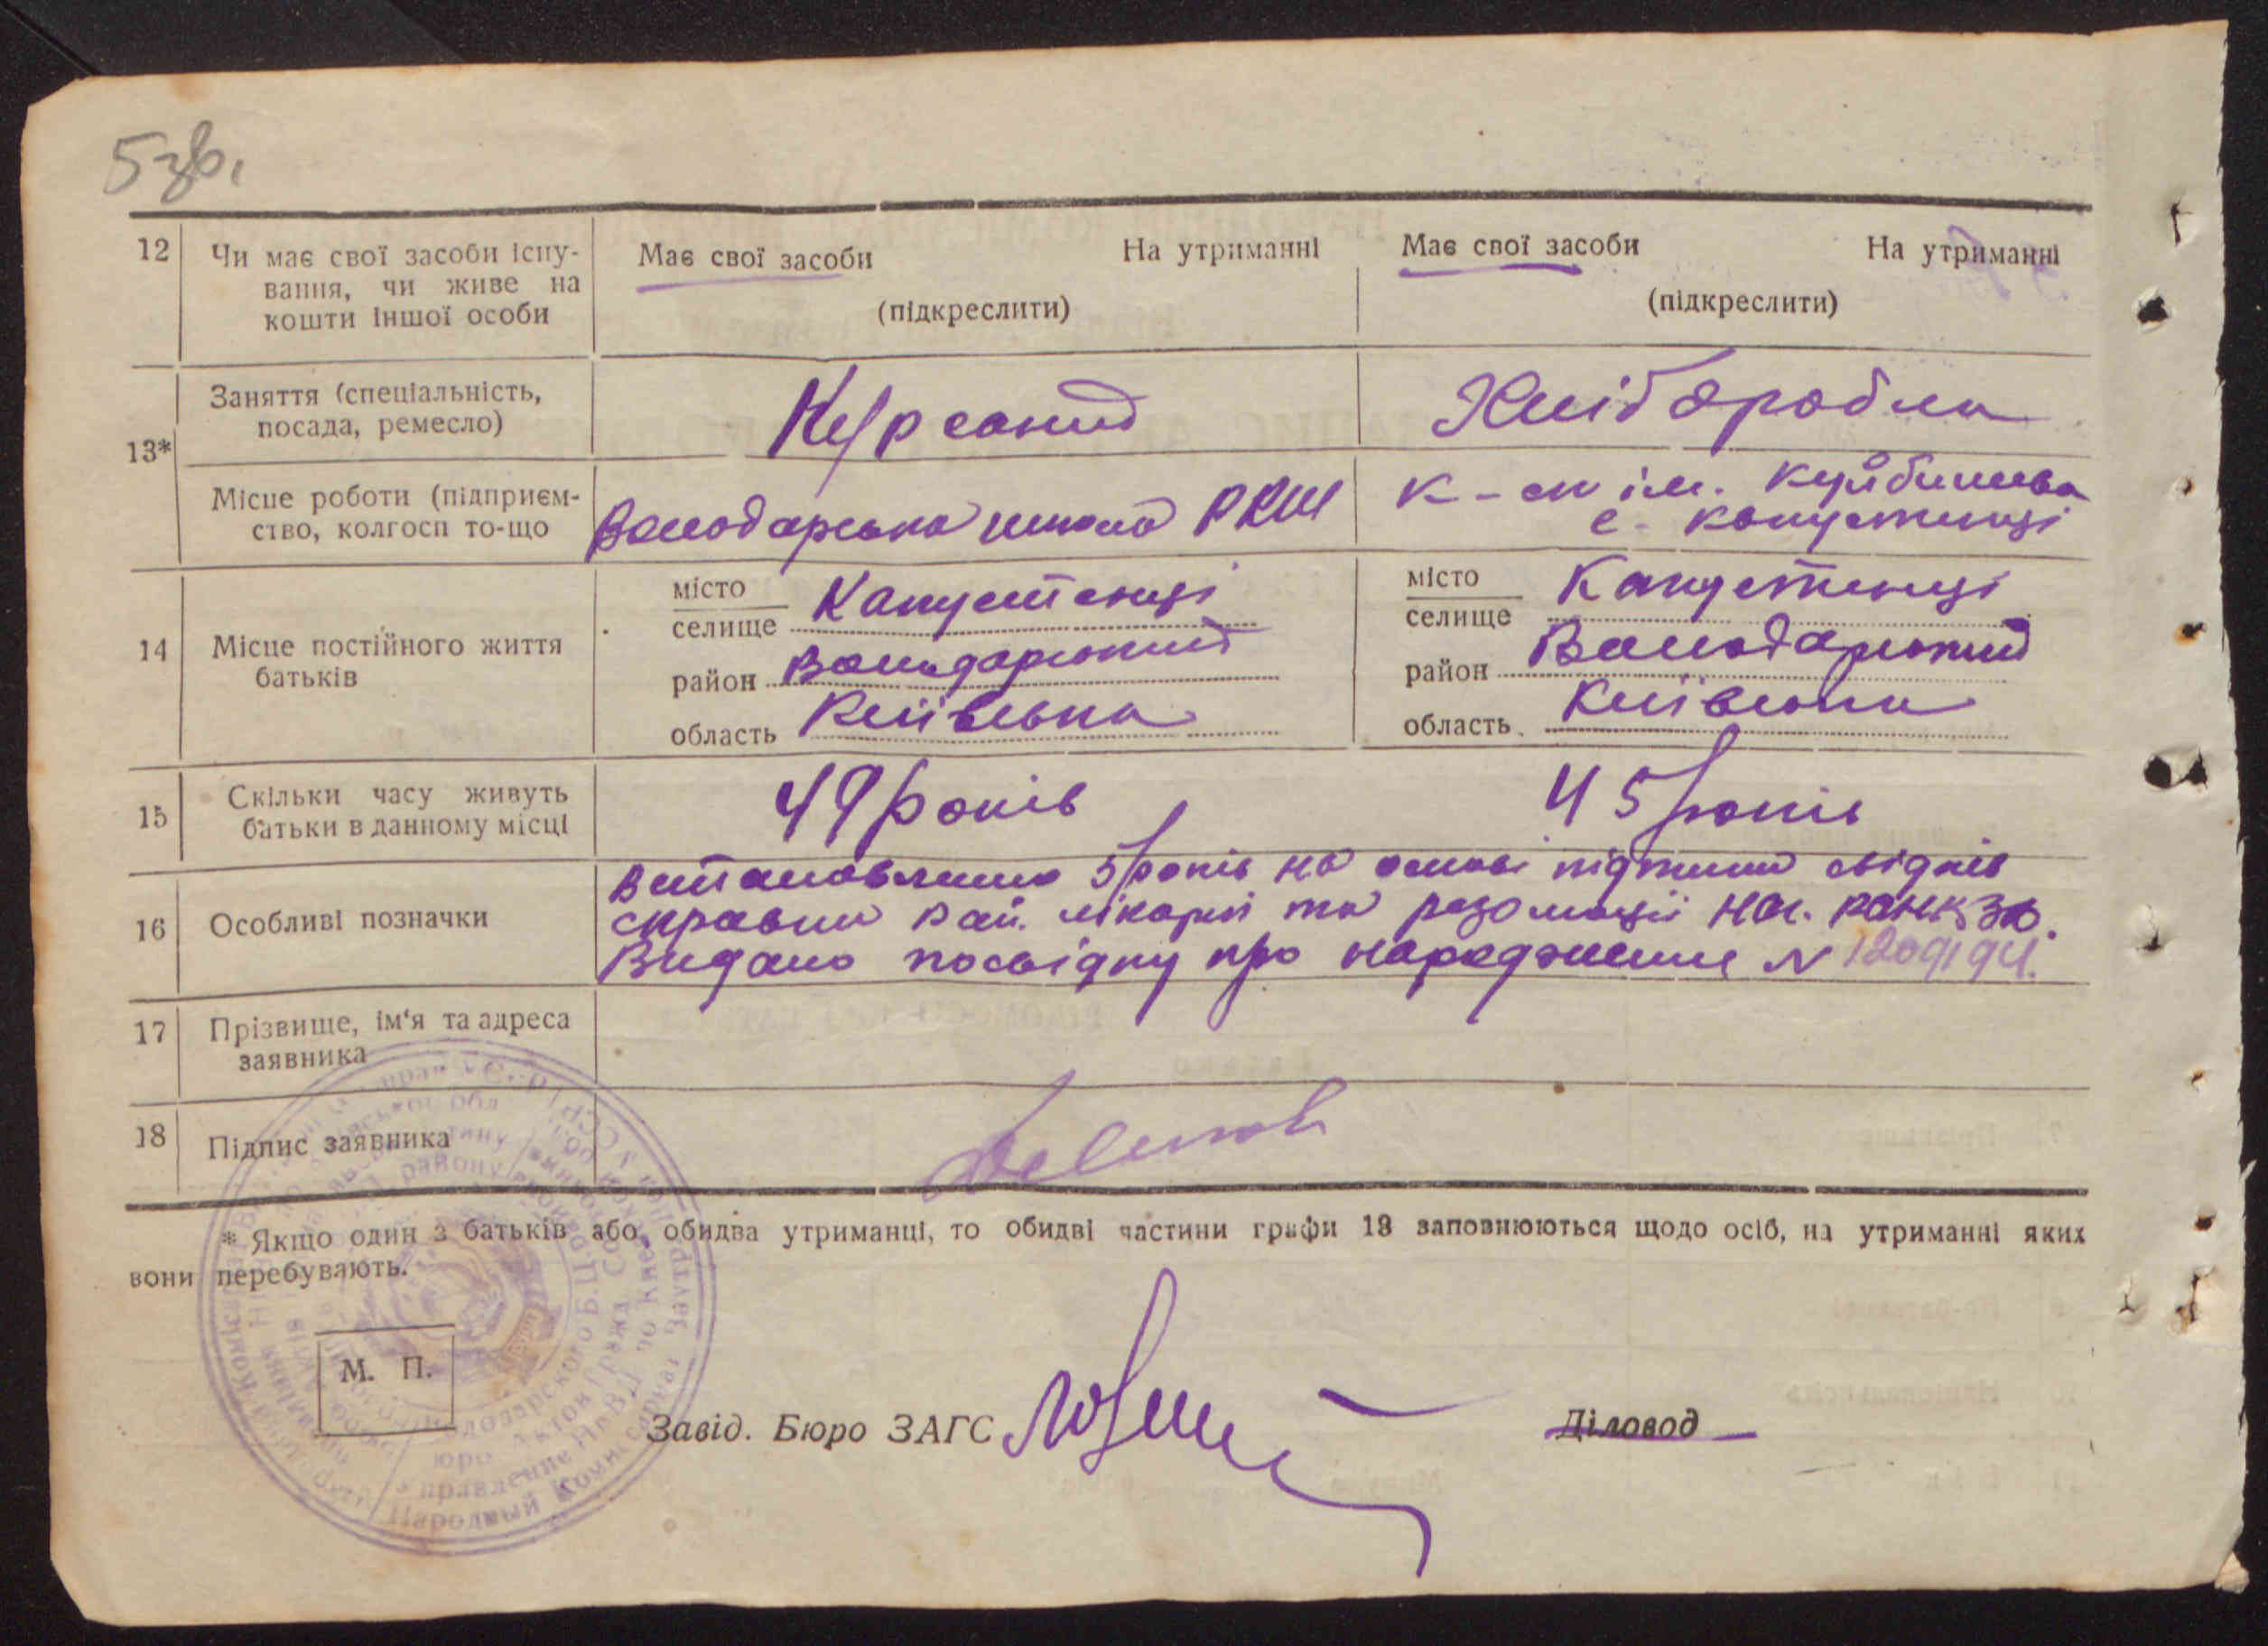 5 зв.
12 Чи має свої засоби існу-
вання, чи живе на
кошти іншої особи
Має свої засоби На утриманні
(підкреслити)
Має свої засоби На утриманні
(підкреслити)
13*
Заняття (спеціальність,
посада, ремесло)
Курсант
Хлібороблн
Місце роботи (підприєм-
ство, колгосп то-що
Володарська школа РКШ
к-сп ім. Куйбишева
с. Капустинці
14 Місце постійного життя
батьків
місто
селище Капустенці
район Володарський
область Київська
місто
селище Капустинці
район Володарський
область Київська
15 Скільки часу живуть
батьки в данному місці
49 років
45 років
16 Особливі позначки
Встановлено 5 років на основі свідків
справки Рай. лікарні та резолюції
Видано посвідку про народження N 1209194.
17 Прізвище, ім'я та адреса
заявника
18 Підпис заявника
* Якщо один з батьків або обидва утриманці, то обидві частини графи 13 заповнюються щодо осіб, на утриманні яких
вони перебувають.
М. П.
Завід. Бюро ЗАГС
Діловод
Народный Комиссариат